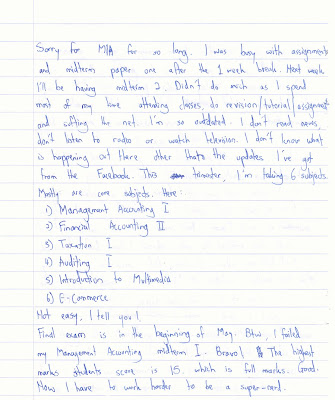 Sorry for MIA for so long. I was busy with assignments
and midterm paper one after the 1 week break. Next week
I'll be having midterm 2. Didn't do much as I spend
most of my time attending classes, do revision/tutorial/assignment
and surfing the net. I'm so outdated. I don't read news,
don't listen to radio or watch television. I don't know what
is happening out there other thats the updates I've got
from the Facebook. This trimester, I'm taking 6 subjects.
Mostly are core subjects. Here:
1) Management Accounting I
2) Financial Accounting II
3) Taxation I
4) Auditing I
5) Introduction to Multimedia
6) E-Commerce
Not easy, I tell you!
Final exam is in the beginning of May. Btw, I failed
my Management Accounting midterm I. Bravo! The highest
marks students score is 15, which is full marks. Good.
Now I have to work harder to be a super-nerd.